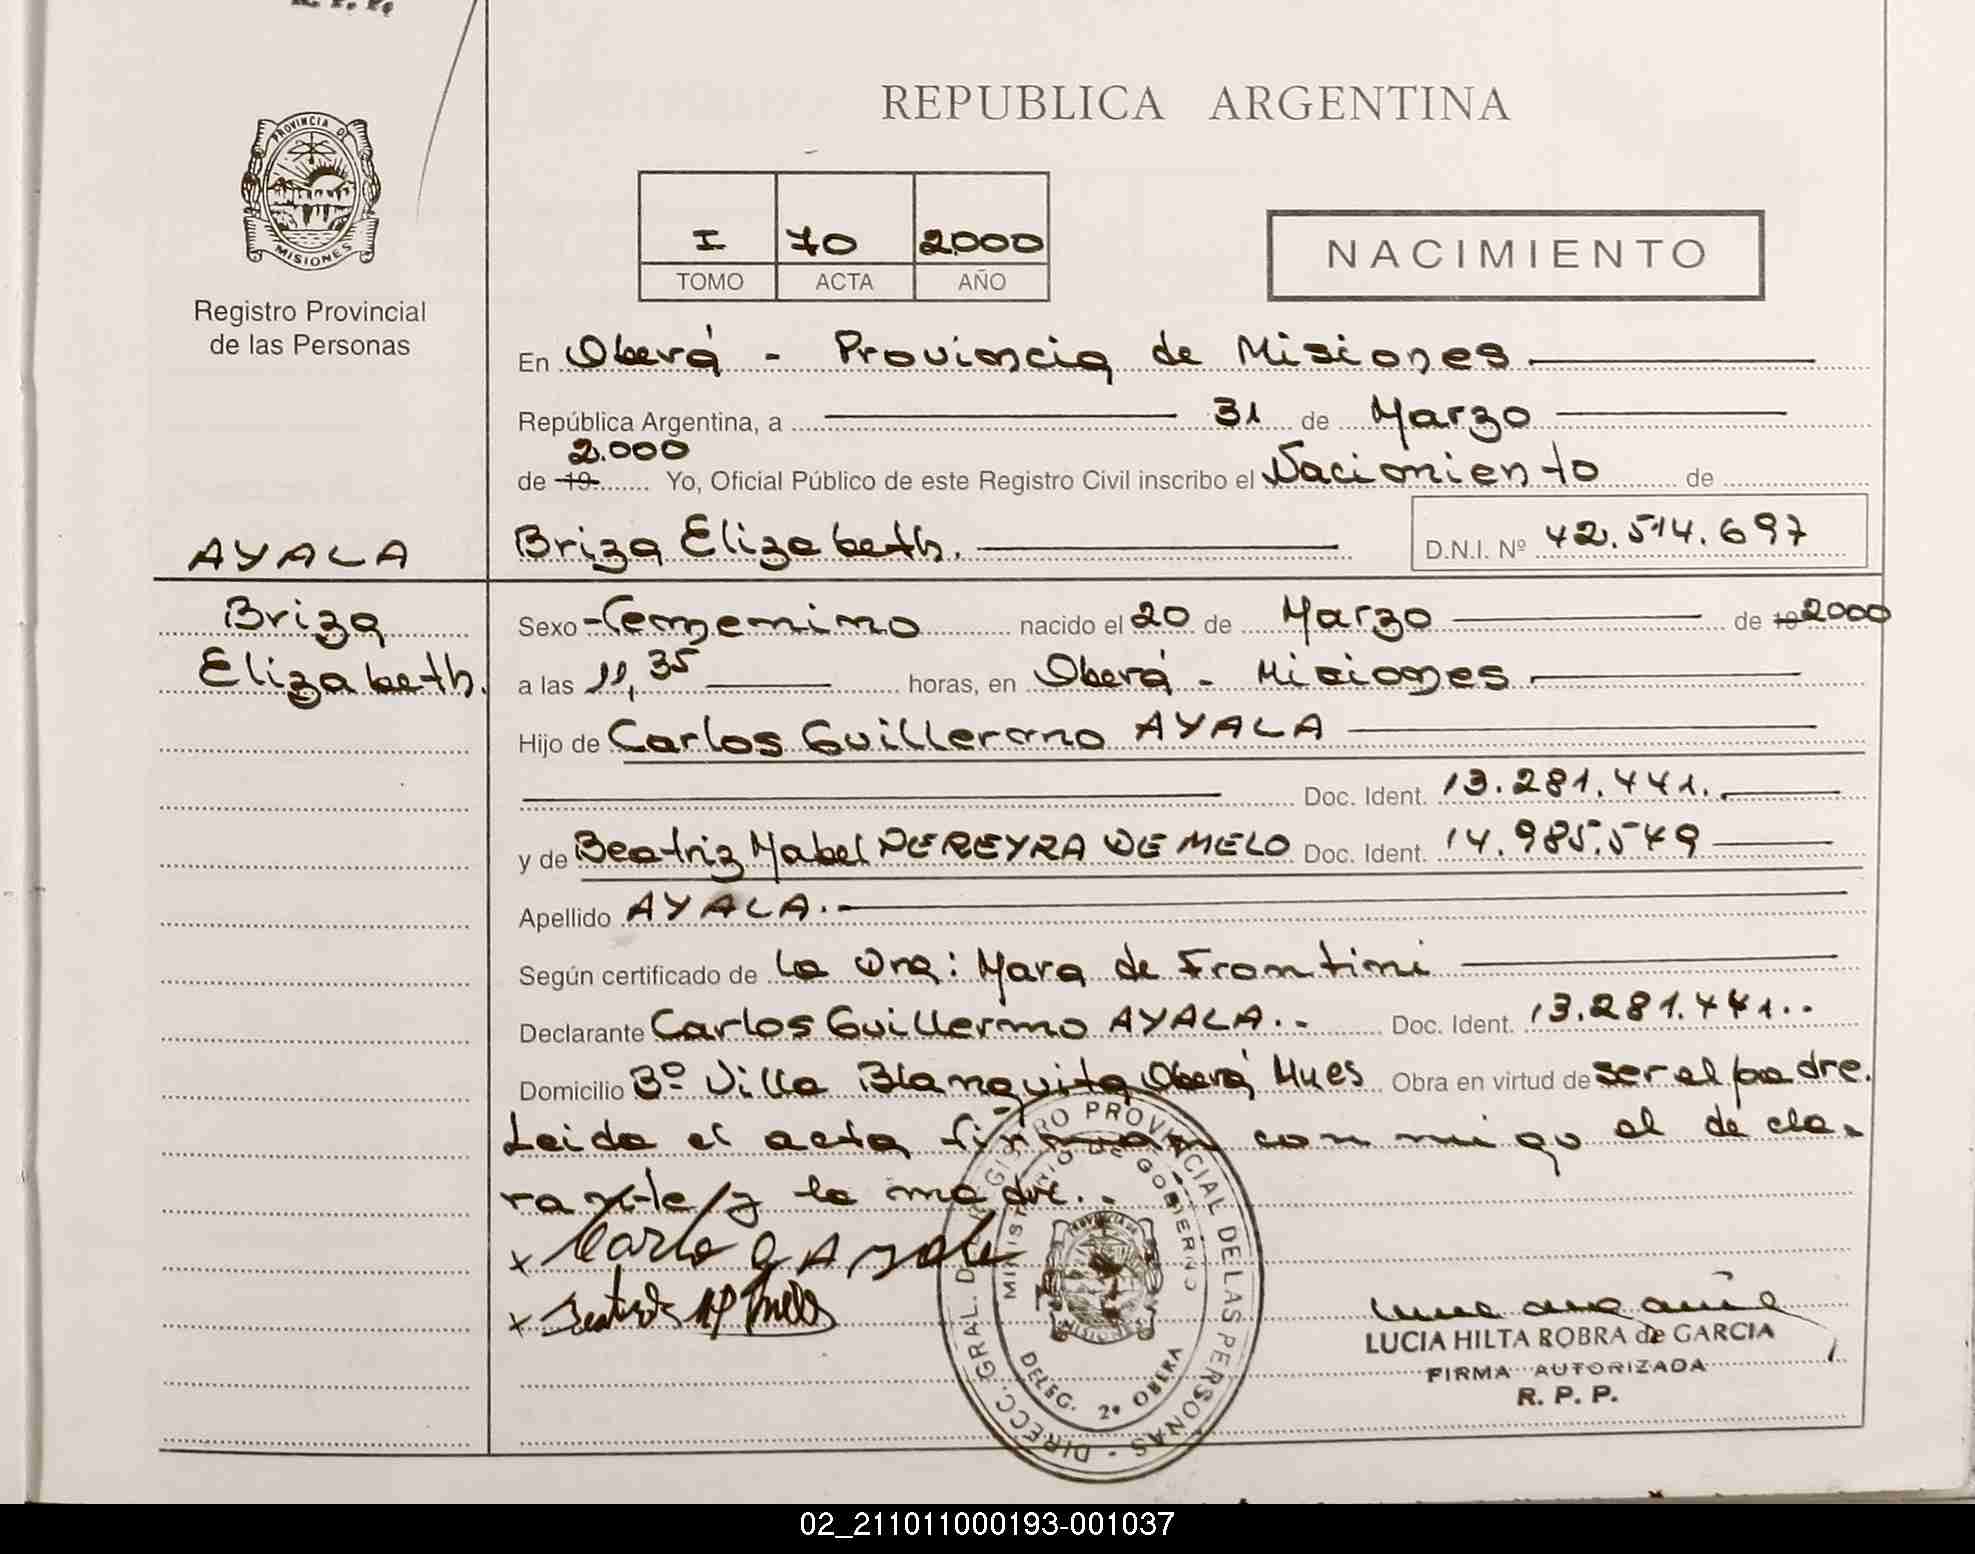 R. P. P.
PROVINCIA DE
MISIONES
Registro Provincial
de las Personas
REPUBLICA ARGENTINA
I 70 2000
TOMO ACTA AÑO
NACIMIENTO
En Oberá - Provincia de Misiones
República Argentina, a 31 de Marzo
2.000
de 19 Yo, Oficial Público de este Registro Civil inscribo el Nacimiento de
AYALA Briza Elizabeth. D.N.I. Nº 42.514.697
Briza Sexo Femenino nacido el 20 de Marzo de 19 2000
Elizabeth. a las 11,35 horas, en Oberá - Misiones
Hijo de Carlos Guillermo AYALA
Doc. Ident. 13.281.441.
y de Beatriz Mabel PEREYRA DE MELO Doc. Ident. 14.985.549
Apellido AYALA.
Según certificado de la Dra: Mara de Frontini
Declarante Carlos Guillermo AYALA.- Doc. Ident. 13.281.441..
Domicilio Bº Villa Blanquita Oberá Mnes Obra en virtud de ser el padre.
Leida el acta firman con migo el decla-
rante y la madre..
x Carlos G Ayala
x
LUCIA HILTA ROBRA de GARCIA
FIRMA AUTORIZADA
R. P. P.
DIRECC. GRAL. DE REGISTRO PROVINCIAL DE LAS PERSONAS -
MINISTERIO DE GOBIERNO
PROVINCIA DE
MISIONES
DELEG. 2ª OBERA
02_211011000193-001037